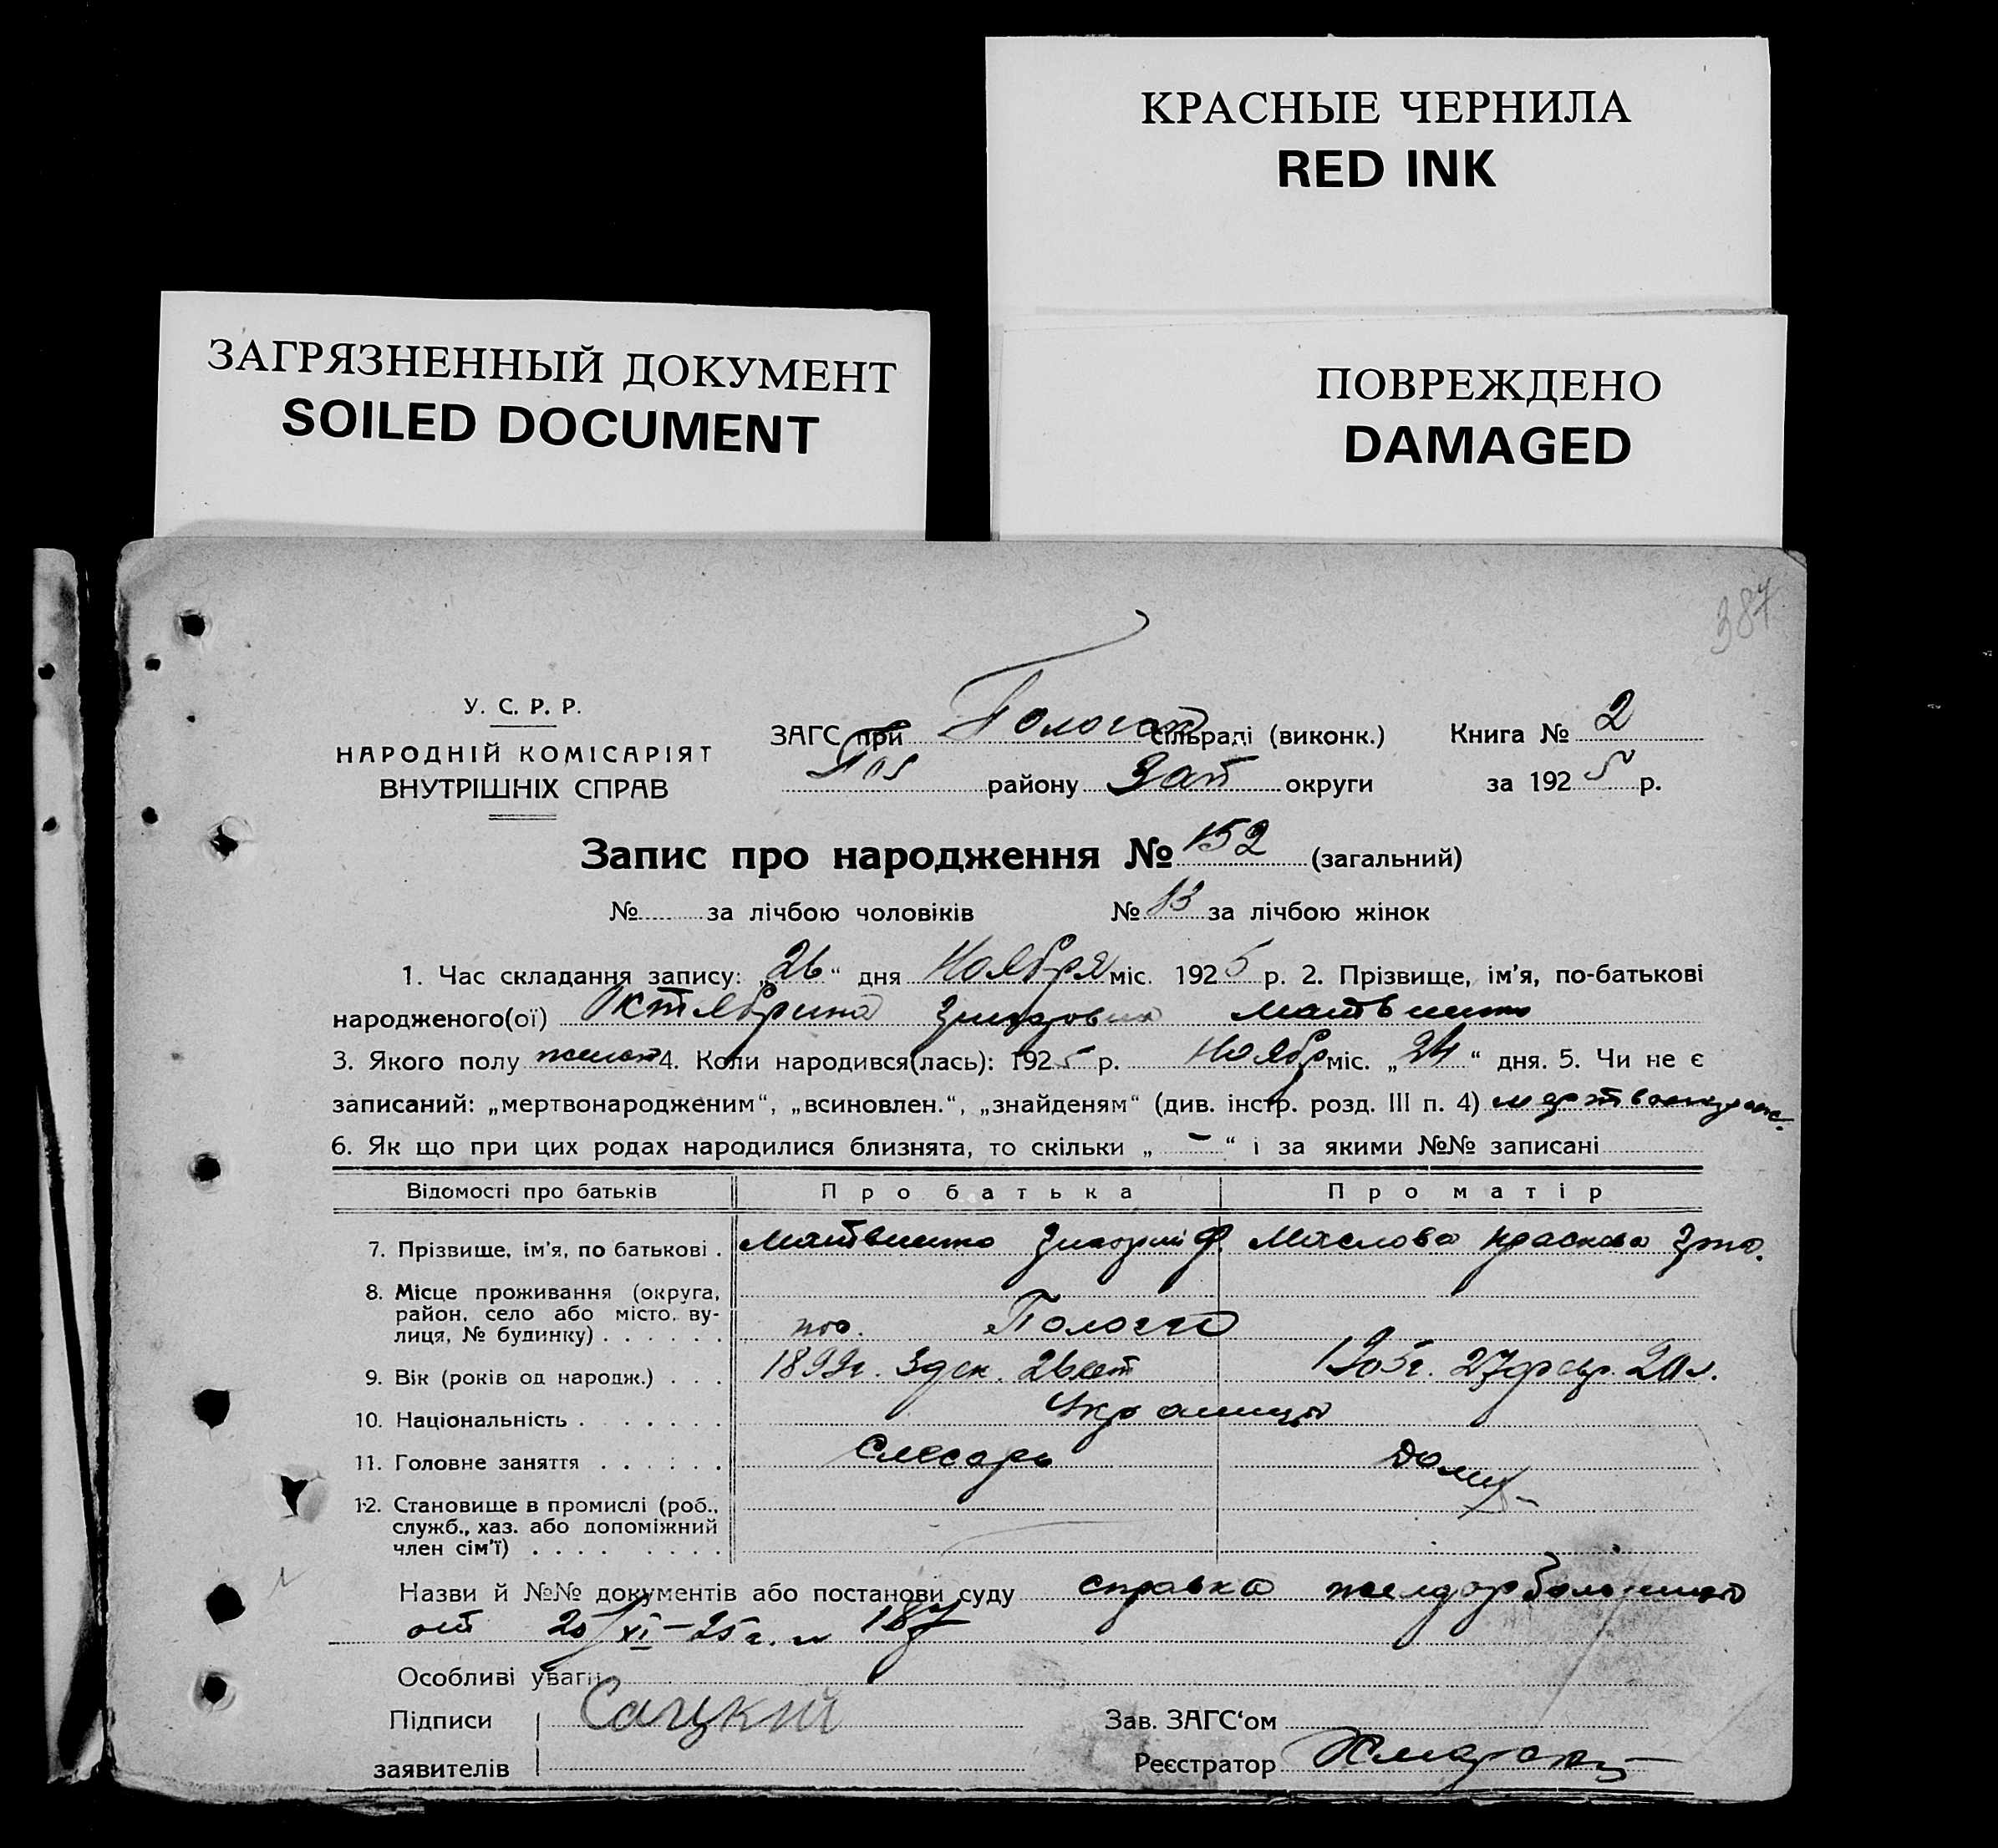 КРАСНЫЕ ЧЕРНИЛА
RED INK
ЗАГРЯЗНЕННЫЙ ДОКУМЕНТ
SOILED DOCUMENT
ПОВРЕЖДЕНО
DAMAGED
387
У. С. Р. Р.
НАРОДНІЙ КОМІСАРІЯТ
ВНУТРІШНІХ СПРАВ
ЗАГС при Пологск сільраді (виконк.) Книга № 2
Пол району Зап округи за 1925 р.
Запис про народження № 152 (загальний)
№ за лічбою чоловіків № 83 за лічбою жінок
1. Час складання запису: „26“ дня Ноября міс. 1925 р. 2. Прізвище, ім'я, по-батькові
народженого(ої) Октябрина Матвиенко
3. Якого полу женск 4. Коли народився(лась): 1925 р. Ноябр міс. „24“ дня. 5. Чи не є
записаний: „мертвонародженим“, „всиновлен.“, „знайденям“ (див. інстр. розд. III п. 4)
6. Як що при цих родах народилися близнята, то скільки „ – “ і за якими №№ записані
Відомості про батьків Про батька Про матір
7. Прізвище, ім'я, по батькові . Матвиенко Ф. Маслова
8. Місце проживання (округа,
район, село або місто, ву-
лиця, № будинку) . . . . . . пос. Пологи
9. Вік (років од народж.) . . . 1899г. 3 дек. 26 лет 1905г. 27 февр. 20 л.
10. Національність . . . . . . . Украинцы
11. Головне заняття . . . . . . Слесарь Домх
12. Становище в промислі (роб.,
служб., хаз. або допоміжний
член сім'ї) . . . . . . . .
Назви й №№ документів або постанови суду справка желдорбольницы
от 25/XI–25 г. № 187
Особливі уваги
Підписи Сацкий Зав. ЗАГС‘ом
заявителів Реєстратор